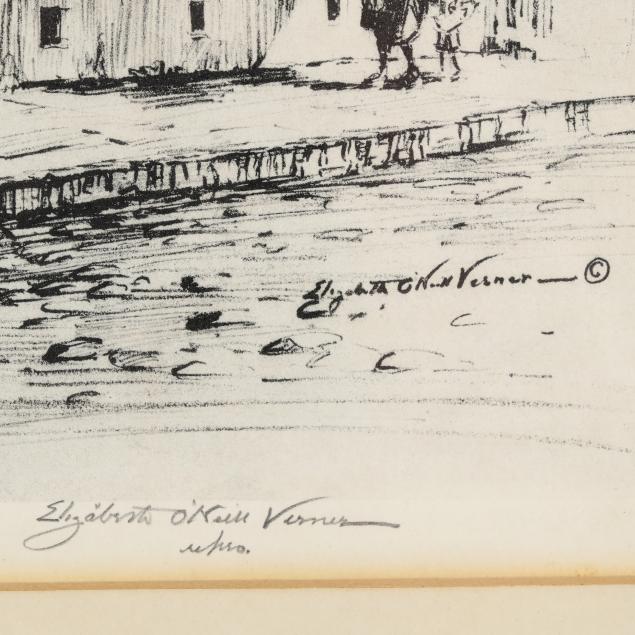 Elizabeth O'Neill Verner ©
Elizabeth O'Neill Verner
repro.